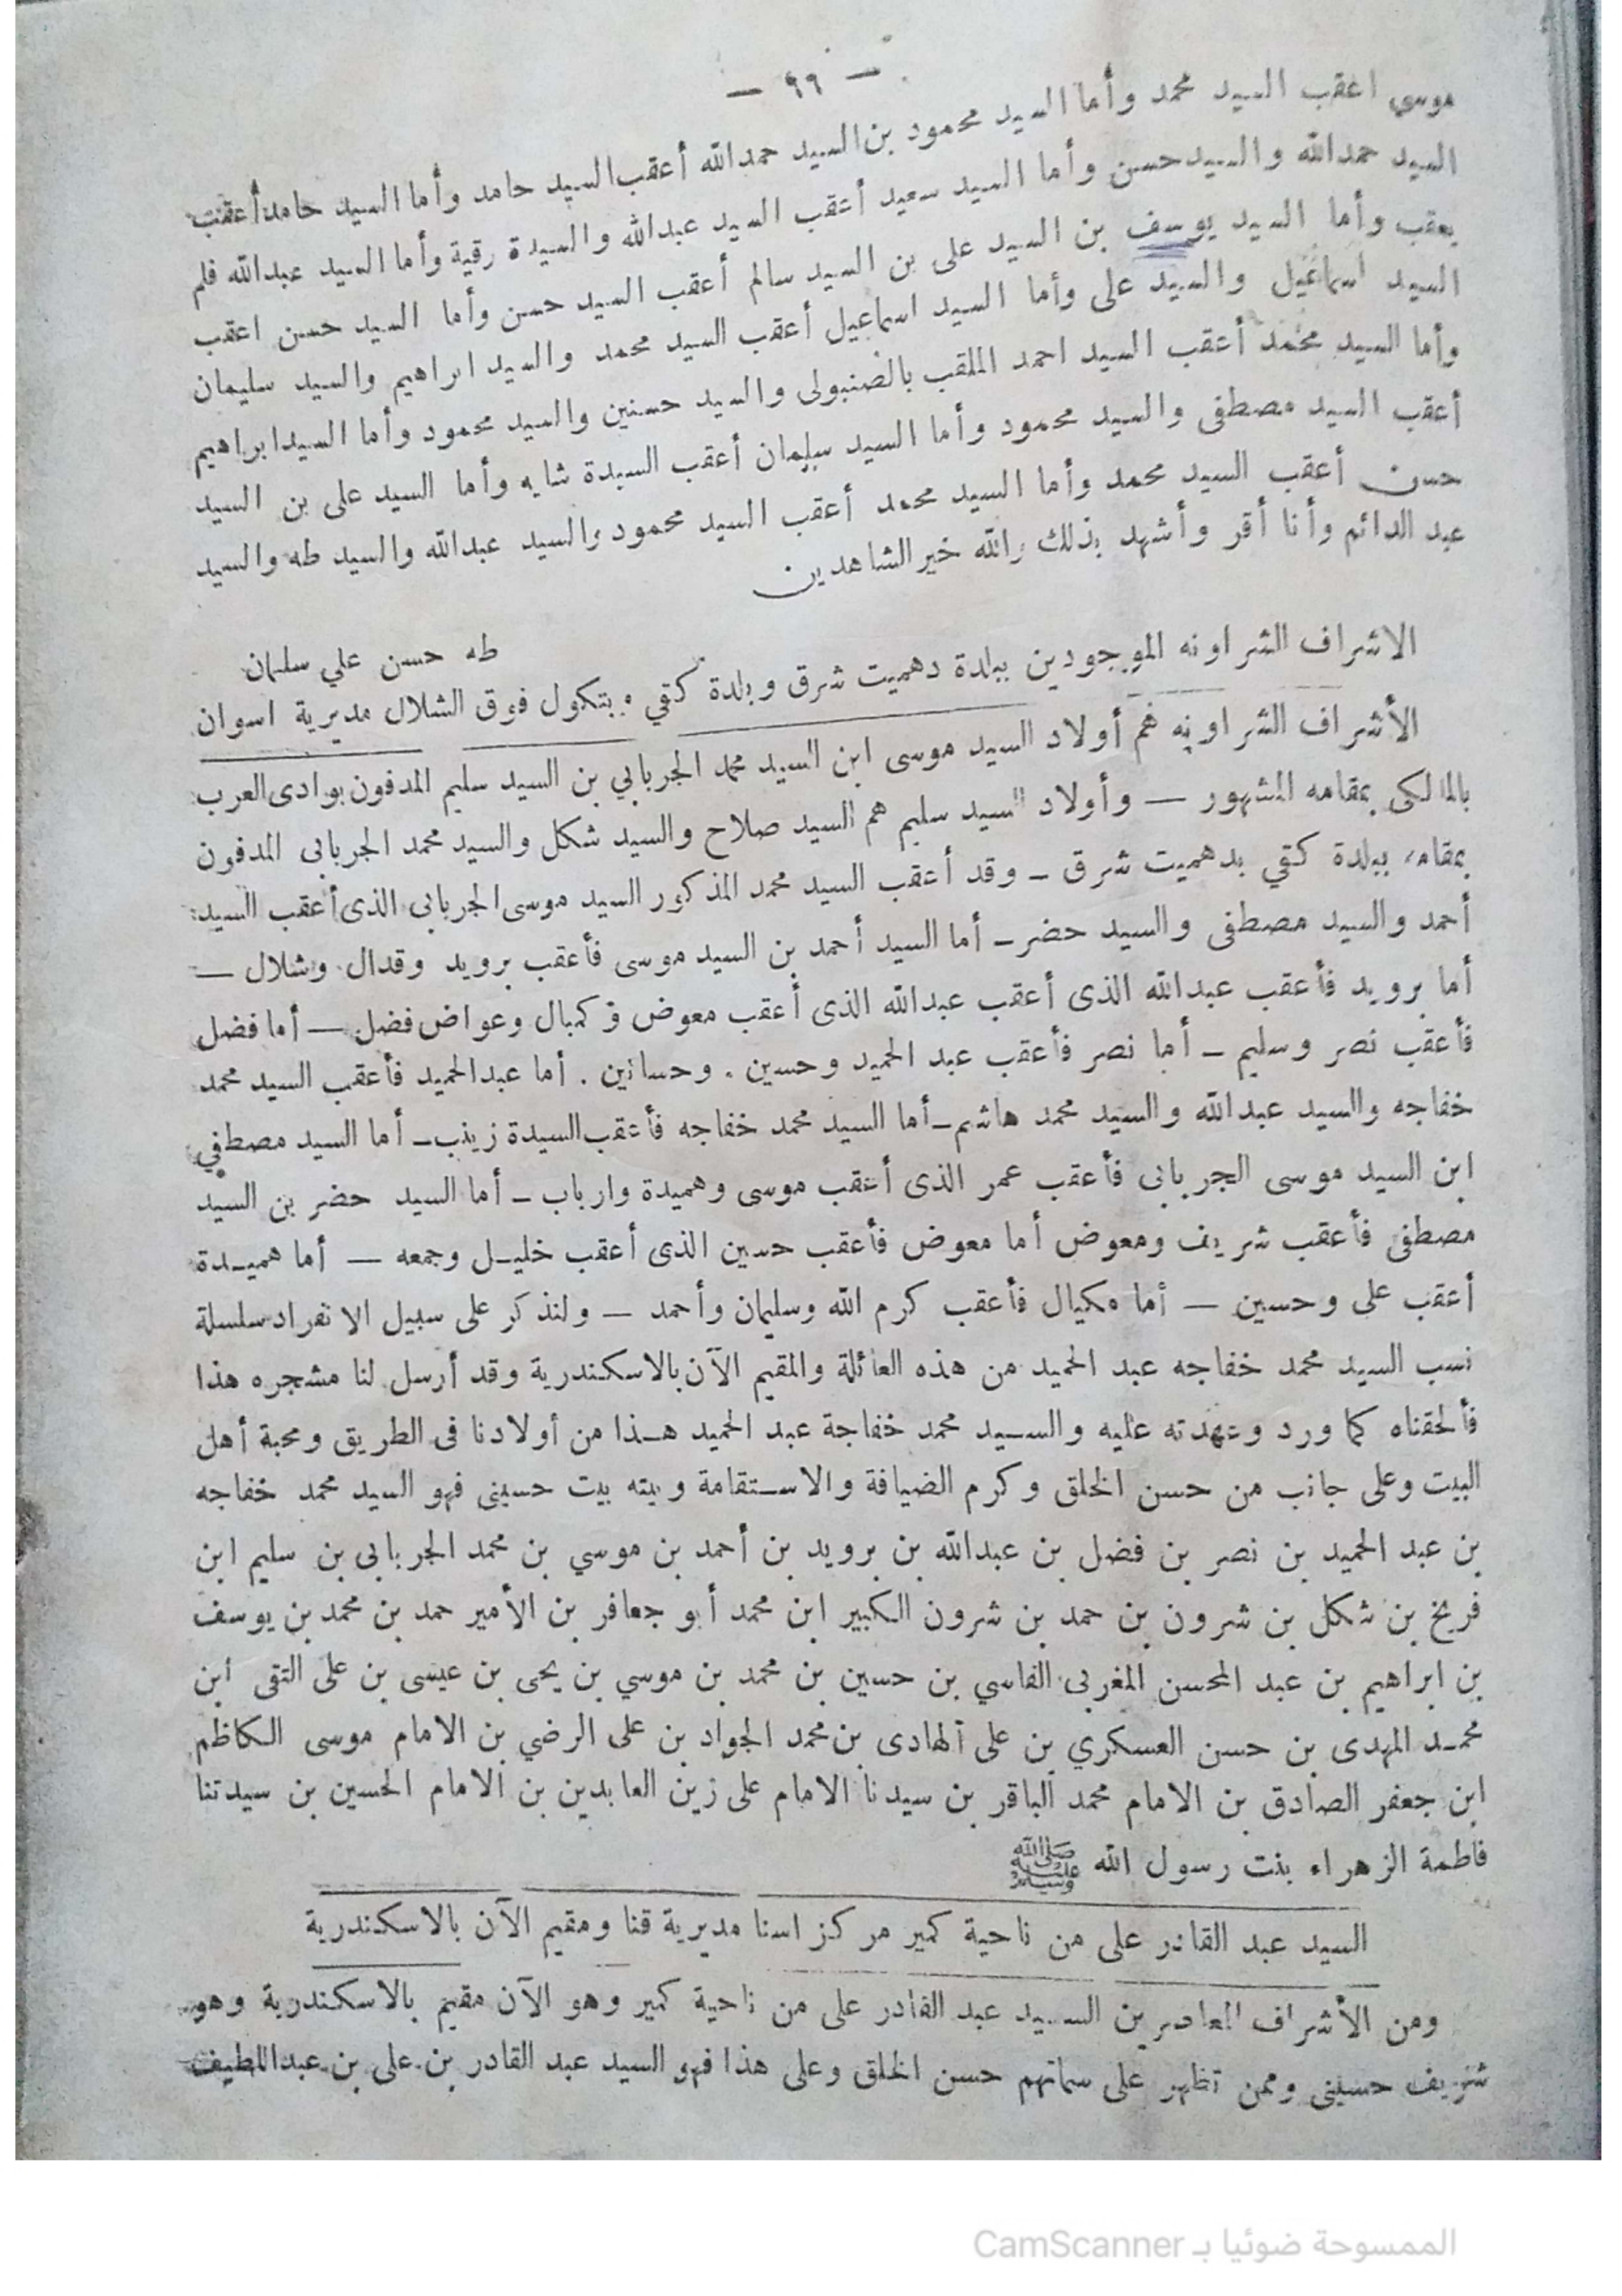 — ٩٩ —
موسى اعقب السيد محمد وأما السيد محمود بن السيد حمدالله أعقب السيد حامد وأما السيد حامد أعقب
السيد حمدالله والسيد حسن وأما السيد سعيد أعقب السيد عبدالله والسيدة رقية وأما السيد عبدالله فلم
يعقب وأما السيد يوسف بن السيد على بن السيد سالم أعقب السيد حسن وأما السيد حسن اعقب
السيد اسماعيل والسيد على وأما السيد اسماعيل أعقب السيد محمد والسيد ابراهيم والسيد سليمان
وأما السيد محمد أعقب السيد احمد الملقب بالضنبولى والسيد حسنين والسيد محمود وأما السيد ابراهيم
أعقب السيد مصطفى والسيد محمود وأما السيد سليمان أعقب السيدة شايه وأما السيد على بن السيد
حسن أعقب السيد محمد وأما السيد محمد أعقب السيد محمود والسيد عبدالله والسيد طه والسيد
عبد الدائم وأنا أقر وأشهد بذلك والله خير الشاهدين
طه حسن علي سليمان
الاشراف الشراونه الموجودين ببلدة دهميت شرق وبلدة كقي وبتكول فوق الشلال مديرية اسوان
الأشراف الشراونه هم أولاد السيد موسى ابن السيد محمد الجربابي بن السيد سليم المدفون بوادى العرب
بالمالكى بمقامه المشهور — وأولاد السيد سليم هم السيد صلاح والسيد شكل والسيد محمد الجربابى المدفون
بمقامه ببلدة كقي بدهميت شرق — وقد أعقب السيد محمد المذكور السيد موسى الجربابى الذى أعقب السيد
أحمد والسيد مصطفى والسيد حضر — أما السيد أحمد بن السيد موسى فأعقب برويد وقدال وشلال —
أما برويد فأعقب عبدالله الذى أعقب عبدالله الذى أعقب معوض و كمبال وعواض فضل — أما فضل
فأعقب نصر وسليم — أما نصر فأعقب عبد الحميد وحسين . وحسانين . أما عبدالحميد فأعقب السيد محمد
خفاجه والسيد عبدالله والسيد محمد هاشم — أما السيد محمد خفاجه فأعقب السيدة زينب — أما السيد مصطفي
ابن السيد موسى الجربابى فأعقب عمر الذى أعقب موسى وهميدة وارباب — أما السيد حضر بن السيد
مصطفى فأعقب شريف ومعوض أما معوض فأعقب حسين الذى أعقب خليل وجمعه — أما هميدة
أعقب على وحسين — أما مكيال فأعقب كرم الله وسليمان وأحمد — ولنذكر على سبيل الانفراد سلسلة
نسب السيد محمد خفاجه عبد الحميد من هذه العائلة والمقيم الآن بالاسكندرية وقد أرسل لنا مشجره هذا
فألحقناه كما ورد وعهدته عليه والسيد محمد خفاجة عبد الحميد هذا من أولادنا فى الطريق ومحبة أهل
البيت وعلى جانب من حسن الخلق وكرم الضيافة والاستقامة وبيته بيت حسينى فهو السيد محمد خفاجه
بن عبد الحميد بن نصر بن فضل بن عبدالله بن برويد بن أحمد بن موسي بن محمد الجربابى بن سليم ابن
فريخ بن شكل بن شرون بن حمد بن شرون الكبير ابن محمد أبو جعافر بن الأمير حمد بن محمد بن يوسف
بن ابراهيم بن عبد المحسن المغربى الفاسي بن حسين بن محمد بن موسي بن يحيى بن عيسى بن على التقى ابن
محمد المهدى بن حسن العسكري بن على الهادى بن محمد الجواد بن على الرضي بن الامام موسى الكاظم
ابن جعفر الصادق بن الامام محمد الباقر بن سيدنا الامام على زين العابدين بن الامام الحسين بن سيدتنا
فاطمة الزهراء بنت رسول الله ﷺ
السيد عبد القادر على من ناحية كمير مركز اسنا مديرية قنا ومقيم الآن بالاسكندرية
ومن الأشراف العامرين السيد عبد القادر على من ناحية كمير وهو الآن مقيم بالاسكندرية وهو
شريف حسينى وممن تظهر على سماتهم حسن الخلق وعلى هذا فهو السيد عبد القادر بن على بن عبداللطيف
الممسوحة ضوئيا بـ CamScanner